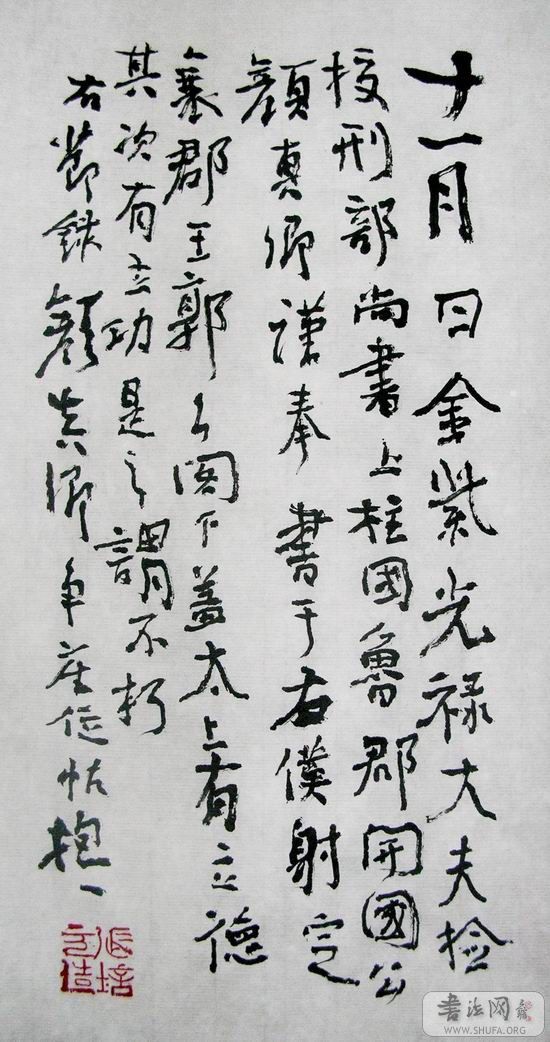 十一月 日金紫光禄大夫檢
校刑部尚書上柱國魯郡開國公
顏真卿謹奉書于右僕射定
襄郡王郭公閣下蓋太上有立德
其次有立功是之謂不朽
右節錄顏真卿争座位帖抱一
書法网
WWW.SHUFA.ORG